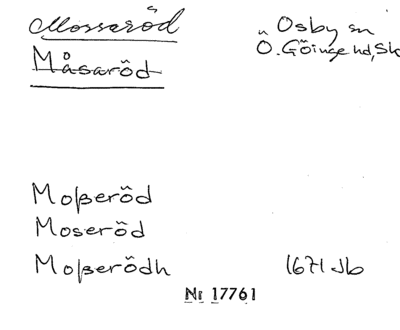 Mosseröd Osby sn
Måsaröd Ö. Göinge hd, Sk
Moßeröd
Moseröd
Moßerödh 1671 Jb
Nr 17761